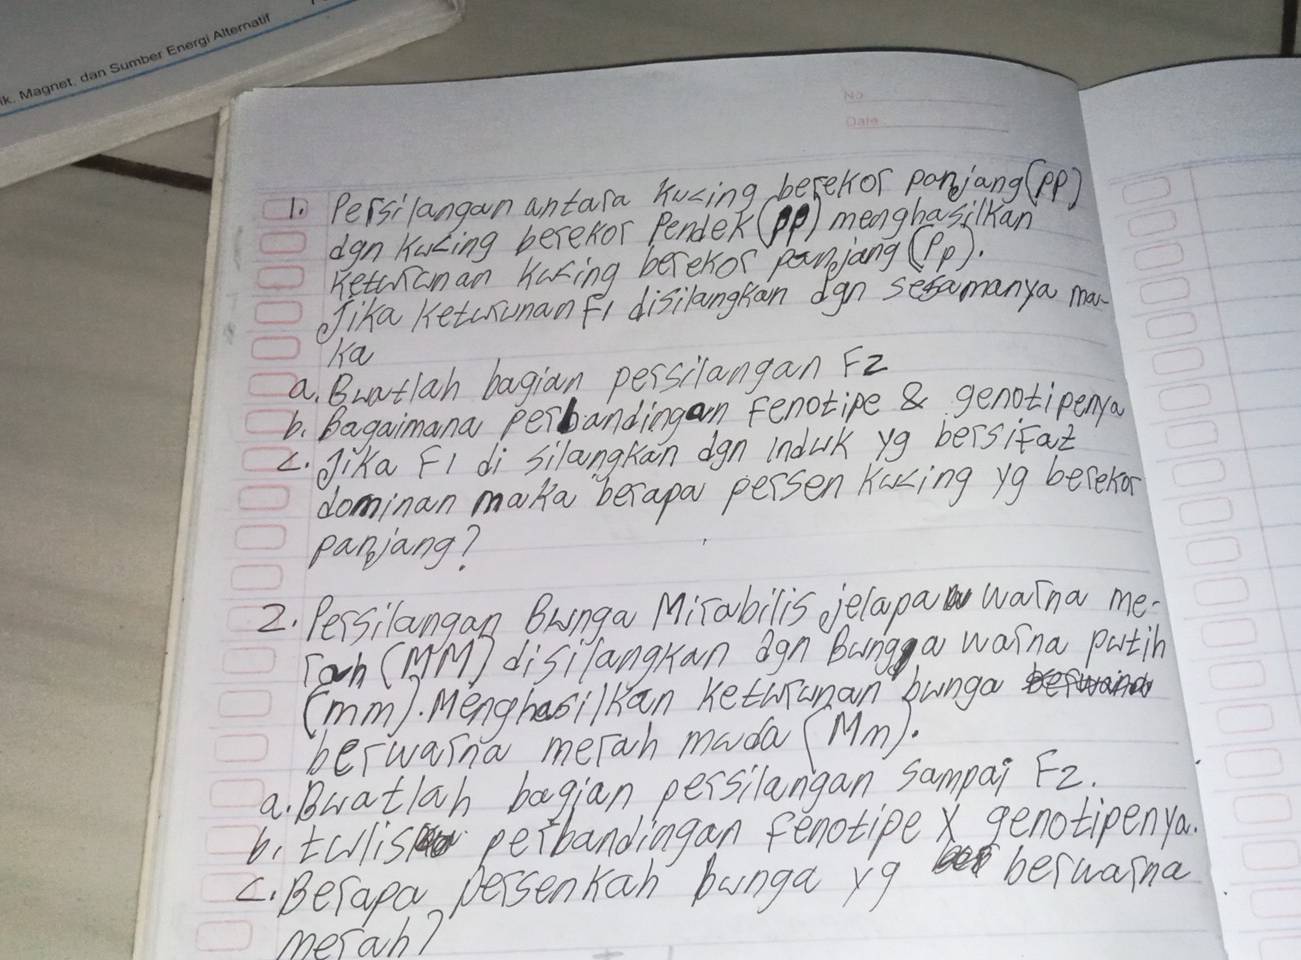 ik. Magnet. dan Sumber Energi Alternatif
No
Date
1. Persilangan antara Kucing berekor panjang (PP)
dgn Kucing berekor Pendek (pp) menghasilkan
Keturunan Kucing berekor panjang (Pp).
Jika Keturunan F1 disilangkan dgn sesamanya ma-
ka
a. Buatlah bagian persilangan F2
b. Bagaimana perbandingan Fenotipe & genotipenya
c. Jika F1 di silangkan dgn induk yg bersifat
dominan maka berapa persen Kucing yg berekor
panjang?
2. Persilangan Bunga Mirabilis jelapa warna me-
rah (MM) disilangkan dgn Bunga warna putih
(mm). Menghasilkan Keturunan bunga
berwarna merah muda (Mm).
a. Buatlah bagian persilangan sampai F2.
b. tulis perbandingan fenotipe X genotipenya.
c. Berapa persenkah bunga yg berwarna
merah?